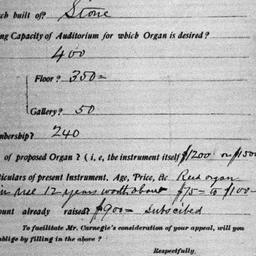 ch built of? Stone
ng Capacity of Auditorium for which Organ is desired?
400
Floor? 350=
Gallery? 50
mbership? 240
of proposed Organ? (i, e, the instrument itself $1200 or $1500
rticulars of present Instrument, Age, Price, &c Reed organ
in use 12 years worth about $75= to $100=
ount already raised? $900= Subscibed
To facilitate Mr. Carnegie's consideration of your appeal, will you
oblige by filling in the above?
Respectfully,